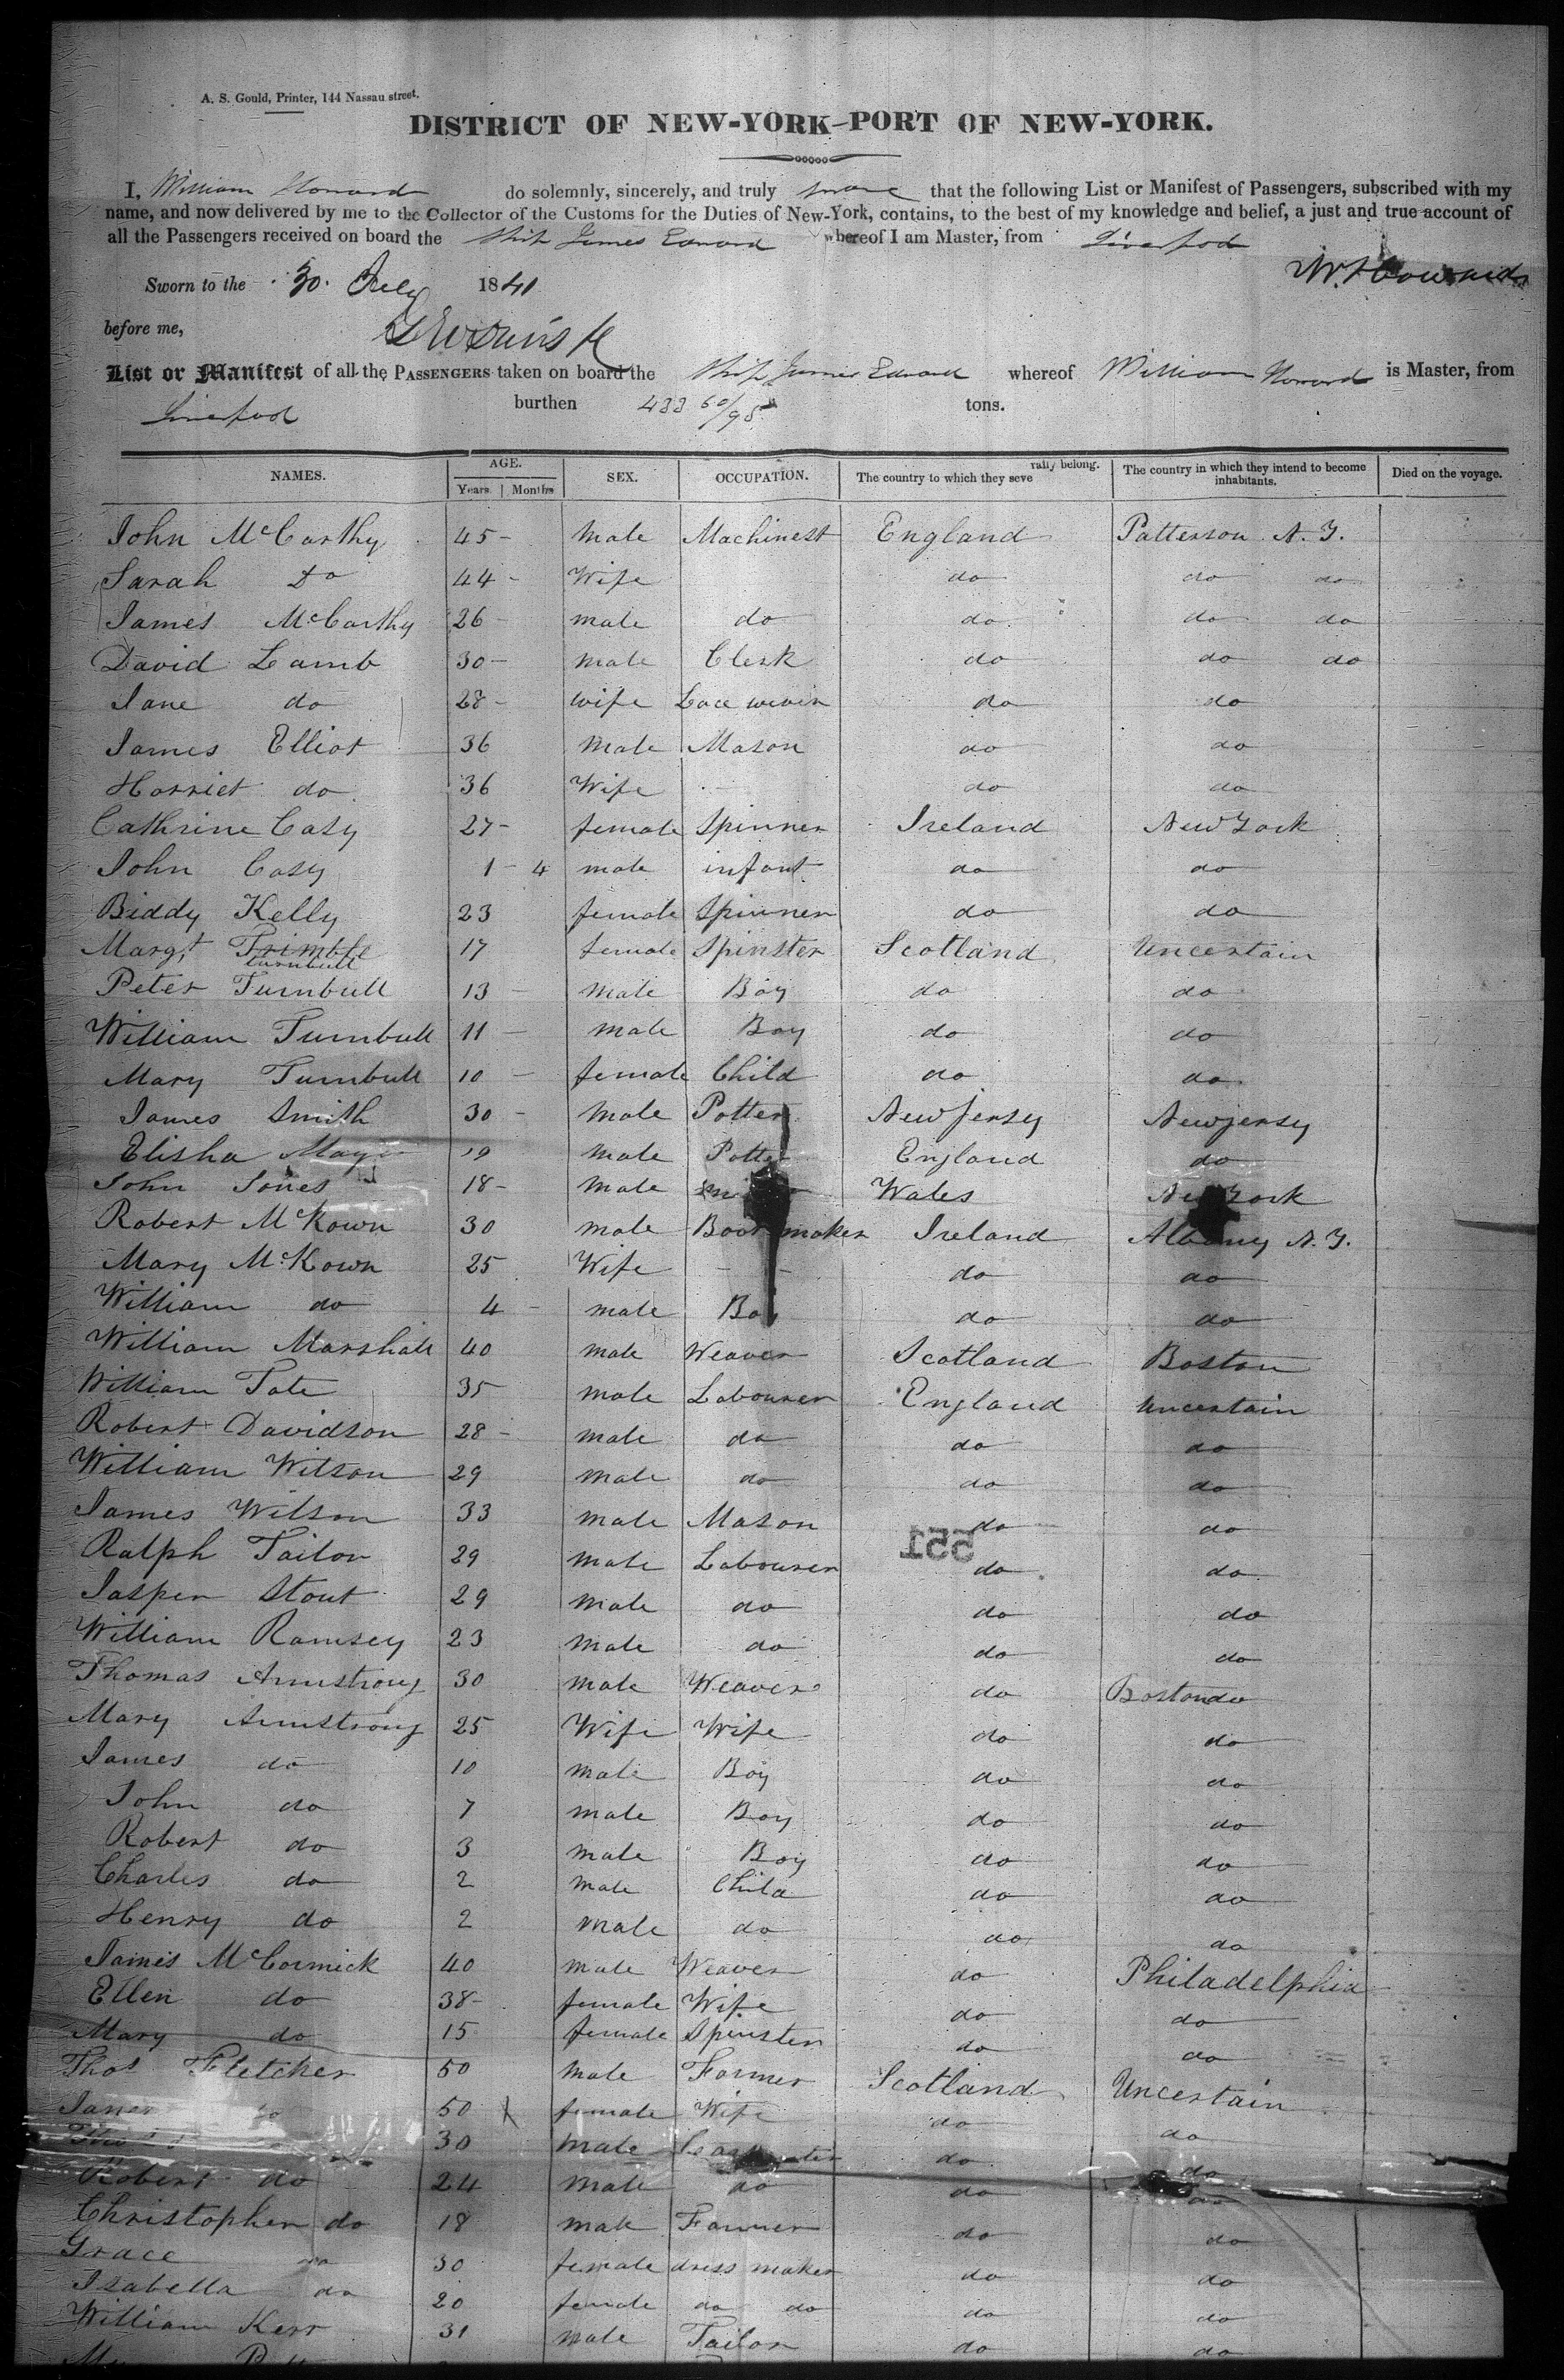 A. S. Gould, Printer, 144 Nassau street.
DISTRICT OF NEW-YORK—PORT OF NEW-YORK.
I, William Howard do solemnly, sincerely, and truly swear that the following List or Manifest of Passengers, subscribed with my
name, and now delivered by me to the Collector of the Customs for the Duties of New-York, contains, to the best of my knowledge and belief, a just and true account of
all the Passengers received on board the Ship James Edward whereof I am Master, from Liverpool
Sworn to the 30. July 1841
before me,
List or Manifest of all the PASSENGERS taken on board the Ship James Edward whereof William Howard is Master, from
Liverpool burthen 433 60/95 tons.
NAMES. AGE. Years Months SEX. OCCUPATION. The country to which they severally belong. The country in which they intend to become inhabitants. Died on the voyage.
John McCarthy 45 - male Machinest England Patterson N. J.
Sarah Do 44 - Wife do do do
James McCarthy 26 - male do do do do
David Lamb 30 - male Clerk do do do
Jane do 28 - wife Lace do do
James Elliot 36 male Mason do do
Harriet do 36 Wife do do
Cathrine Casy 27 - female Spinner Ireland New York
John Casy 1 - 4 male infant do do
Biddy Kelly 23 female Spinner do do
Margt Trimble Turnbull 17 female Spinster Scotland Uncertain
Peter Turnbull 13 - male Boy do do
William Turnbull 11 - male Boy do do
Mary Turnbull 10 - female Child do do
James Smith 30 - male Potter New Jersey New Jersey
Elisha 19 male Potter England do
John Jones 18 - male Wales New York
Robert McKown 30 male Boot maker Ireland Albany N. Y.
Mary McKown 25 Wife - - do do
William do 4 - male Boy do do
William Marshall 40 male Weaver Scotland Boston
William Tate 35 male Labourer England Uncertain
Robert Davidson 28 - male do do do
William Wilson 29 male do do do
James Wilson 33 male Mason do do
551
Ralph Tailor 29 male Labourer do do
Jasper Stout 29 male do do do
William Ramsey 23 male do do do
Thomas Armstrong 30 male Weaver do Boston do
Mary Armstrong 25 Wife Wife do do
James do 10 male Boy do do
John do 7 male Boy do do
Robert do 3 male Boy do do
Charles do 2 male Child do do
Henry do 2 male do do do
James McCormick 40 male Weaver do Philadelphia
Ellen do 38 - female Wife do do
Mary do 15 female Spinster do do
Thos Fletcher 50 male Farmer Scotland Uncertain
do 50 female Wife do do
30 male Carpenter do do
Robert do 24 male do do do
Christopher do 18 male Farmer do do
Grace do 30 female dress maker do do
Isabella do 20 female do do do do
William Kerr 31 male Tailor do do